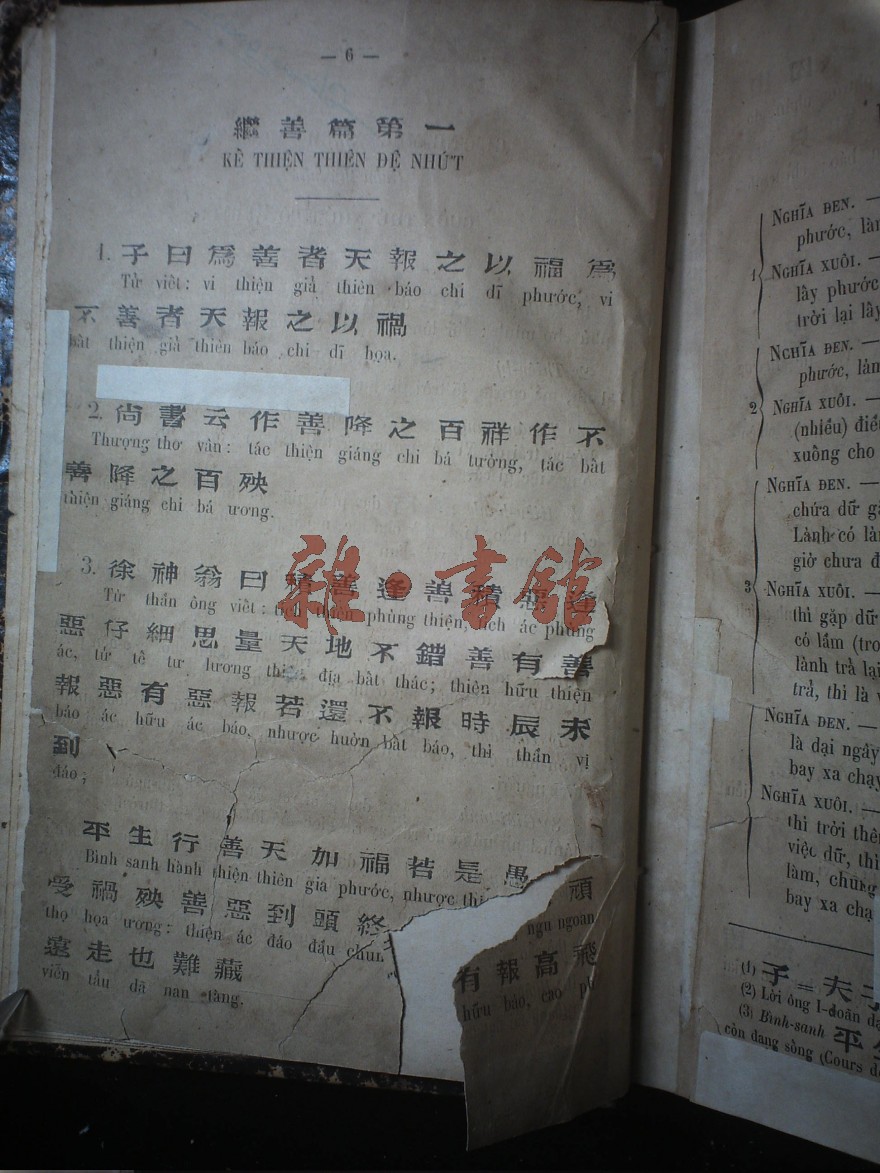 — 6 —
繼善篇第一
KẾ THIỆN THIÊN ĐỆ NHỨT
1. 子曰爲善者天報之以福爲
Tử viết: vi thiện giả thiên báo chi dĩ phước, vi
不善者天報之以禍
bất thiện giả thiên báo chi dĩ họa.
2. 尙書云作善降之百祥作不
Thượng thơ vân: tác thiện giáng chi bá tường, tác bất
善降之百殃
thiện giáng chi bá ương.
3. 徐神翁曰積善逢善積惡逢
Từ thần ông viết: tích thiện phùng thiện, tích ác phùng
惡仔細思量天地不錯善有善
ác, tử tế tư lương thiên địa bất thác; thiện hữu thiện
報惡有惡報若還不報時辰未
báo ác hữu ác báo, nhược huờn bất báo, thì thần vị
到
đáo;
平生行善天加福若是愚 頑
Bình sanh hành thiện thiên gia phước, nhược thị ngu ngoan
受禍殃善惡到頭終 有報高飛
thọ họa ương: thiện ác đáo đầu chun hữu báo, cao ph
遠走也難藏
viễn tẩu dã nan tàng.
雜·書館
NGHĨA ĐEN. —
phước, làn
1 NGHĨA XUÔI. —
lấy phước
trời lại lấy
NGHĨA ĐEN. —
phước, làn
2 NGHĨA XUÔI. —
(nhiều) điề
xuống cho
NGHĨA ĐEN. —
chứa dữ gặ
Lành có làn
giờ chưa đ
3 NGHĨA XUÔI. —
thì gặp dữ
có lầm (tro
lành trả lại
trả, thì là v
NGHĨA ĐEN. —
là dại ngây
bay xa chạy
NGHĨA XUÔI. —
thì trời thê
việc dữ, thì
làm, chung
bay xa chạ
(1) 子 = 夫子
(2) Lời ông I-doãn dạ
(3) Bình-sanh 平
còn đang sống (Cours de